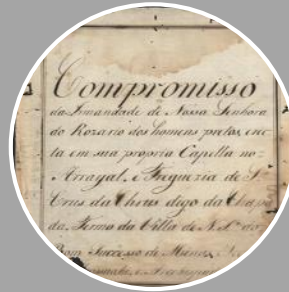 Compromisso
da Irmandade de Nossa Senhora
do Rozario dos homens pretos, erec
ta em sua propria Capella no
Arrayal, e Freguezia de S.ta
Crus da Cha digo da Chapa
da, Termo da Villa de N. S. do
Bom Successo de Minas